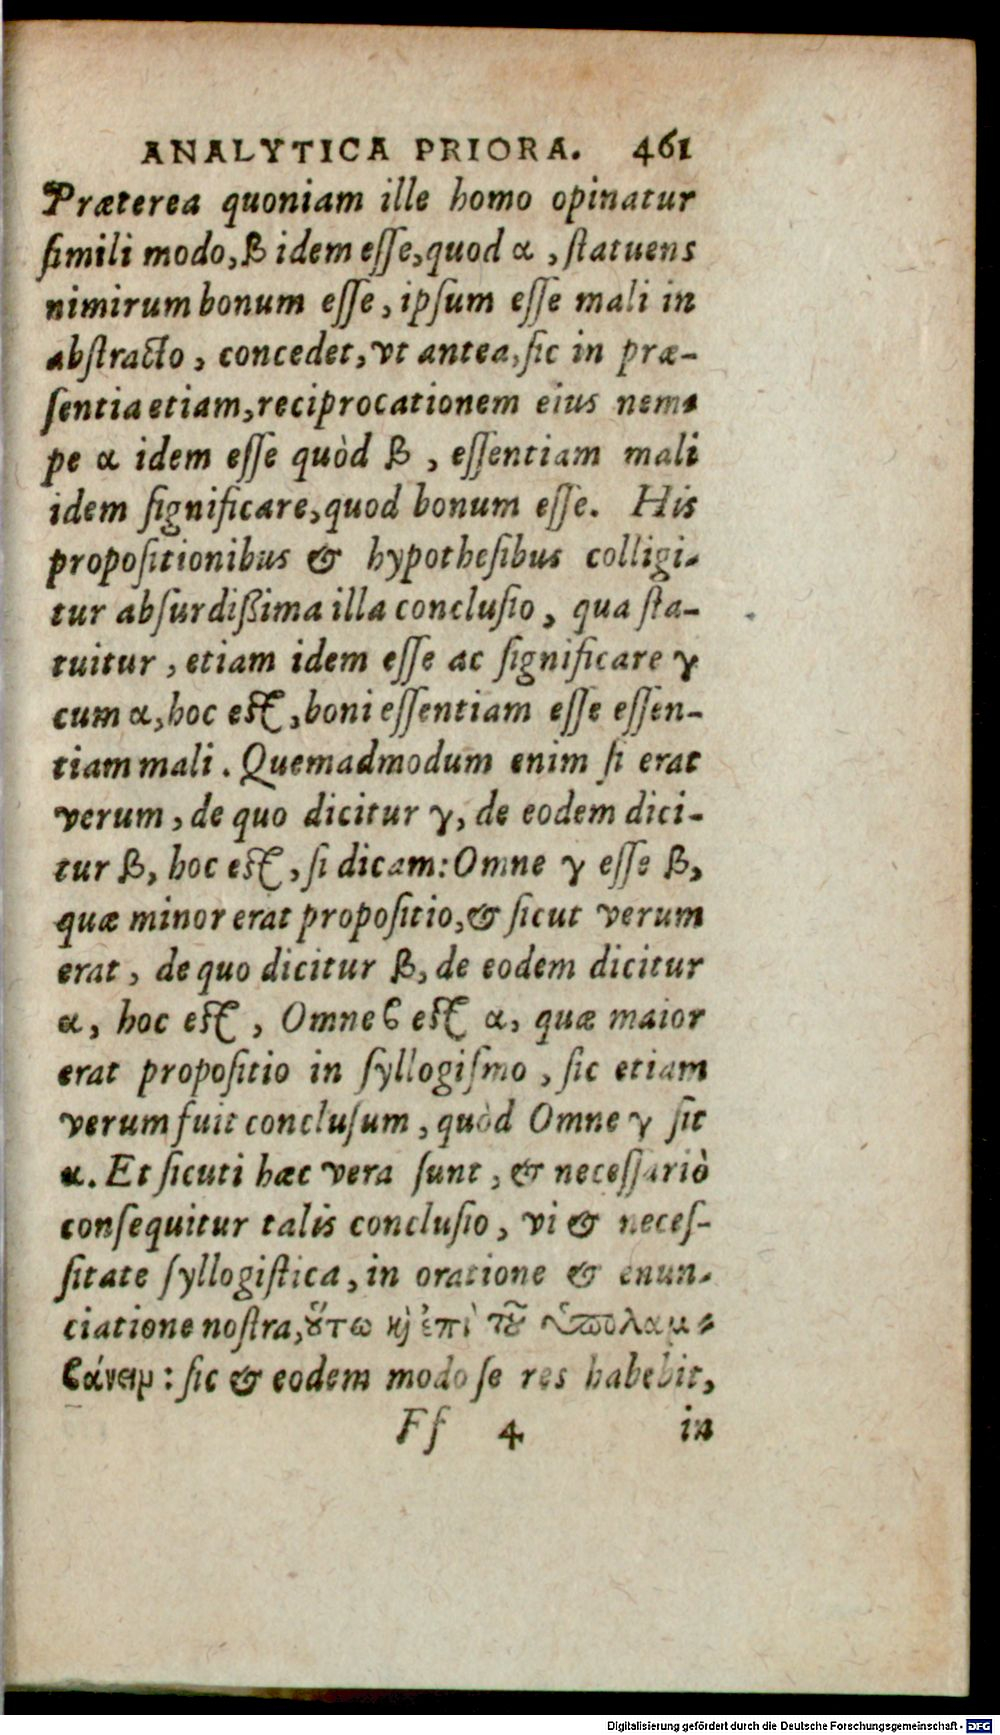 ANALYTICA PRIORA. 461
Præterea quoniam ille homo opinatur
ſimili modo, β idem eſſe, quod α, ſtatuens
nimirum bonum eſſe, ipſum eſſe mali in
abſtracto, concedet, vt antea, ſic in præ-
ſentia etiam, reciprocationem eius nem-
pe α idem eſſe quòd β, eſſentiam mali
idem ſignificare, quod bonum eſſe. His
propoſitionibus & hypotheſibus colligi-
tur abſurdiſſima illa concluſio, qua ſta-
tuitur, etiam idem eſſe ac ſignificare γ
cum α, hoc eſt, boni eſſentiam eſſe eſſen-
tiam mali. Quemadmodum enim ſi erat
verum, de quo dicitur γ, de eodem dici-
tur β, hoc eſt, ſi dicam: Omne γ eſſe β,
quæ minor erat propoſitio, & ſicut verum
erat, de quo dicitur β, de eodem dicitur
α, hoc eſt, Omne ϐ eſt α, quæ maior
erat propoſitio in ſyllogiſmo, ſic etiam
verum fuit concluſum, quòd Omne γ ſit
α. Et ſicuti hæc vera ſunt, & neceſſariò
conſequitur talis concluſio, vi & neceſ-
ſitate ſyllogiſtica, in oratione & enun-
ciatione noſtra, ὅυτω καὶ ἐπὶ τοῦ ὑπολαμ-
ϐάνειν: ſic & eodem modo ſe res habebit,
Ff 4 in
Digitalisierung gefördert durch die Deutsche Forschungsgemeinschaft - DFG